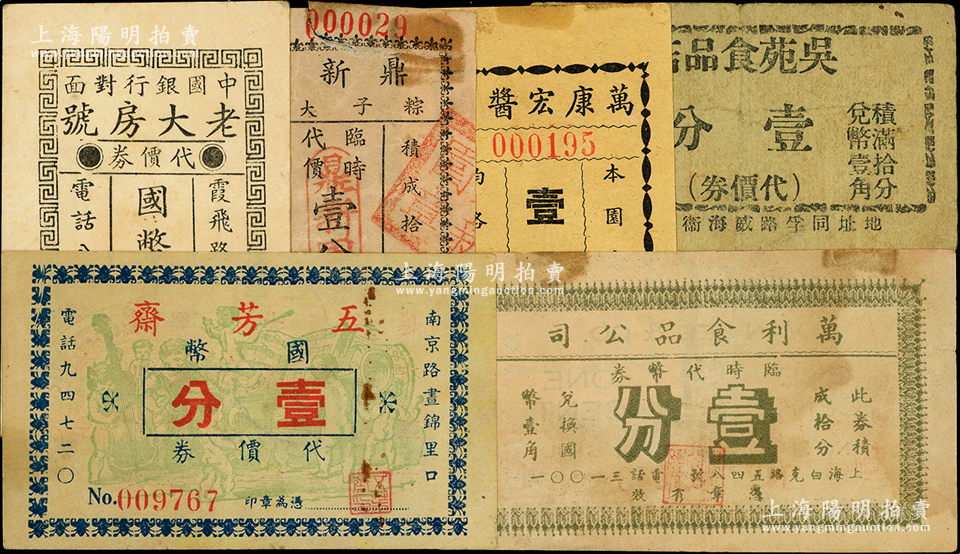 上海陽明拍賣
中國銀行對面
老大房號
代價券
霞飛路
國幣
電話八
000029
鼎新
粽子大
積成拾
臨時
代價
壹分
萬康宏醬
000195
本園
壹
吳苑食品
壹分
積滿拾分
兌幣壹角
(代價券)
地址同孚路威海衛
上海陽明拍賣
www.yangmingauction.com
五芳齋
國幣
壹分
代價券
南京路晝錦里口
電話九四七二〇
No.009767
印章為憑
萬利食品公司
臨時代幣券
壹分
此券積
成拾分
兌換國
幣壹角
ONE
上海白克路五四八號電話三一〇〇一
憑章有效
上海陽明拍賣
www.yangmingauction.com